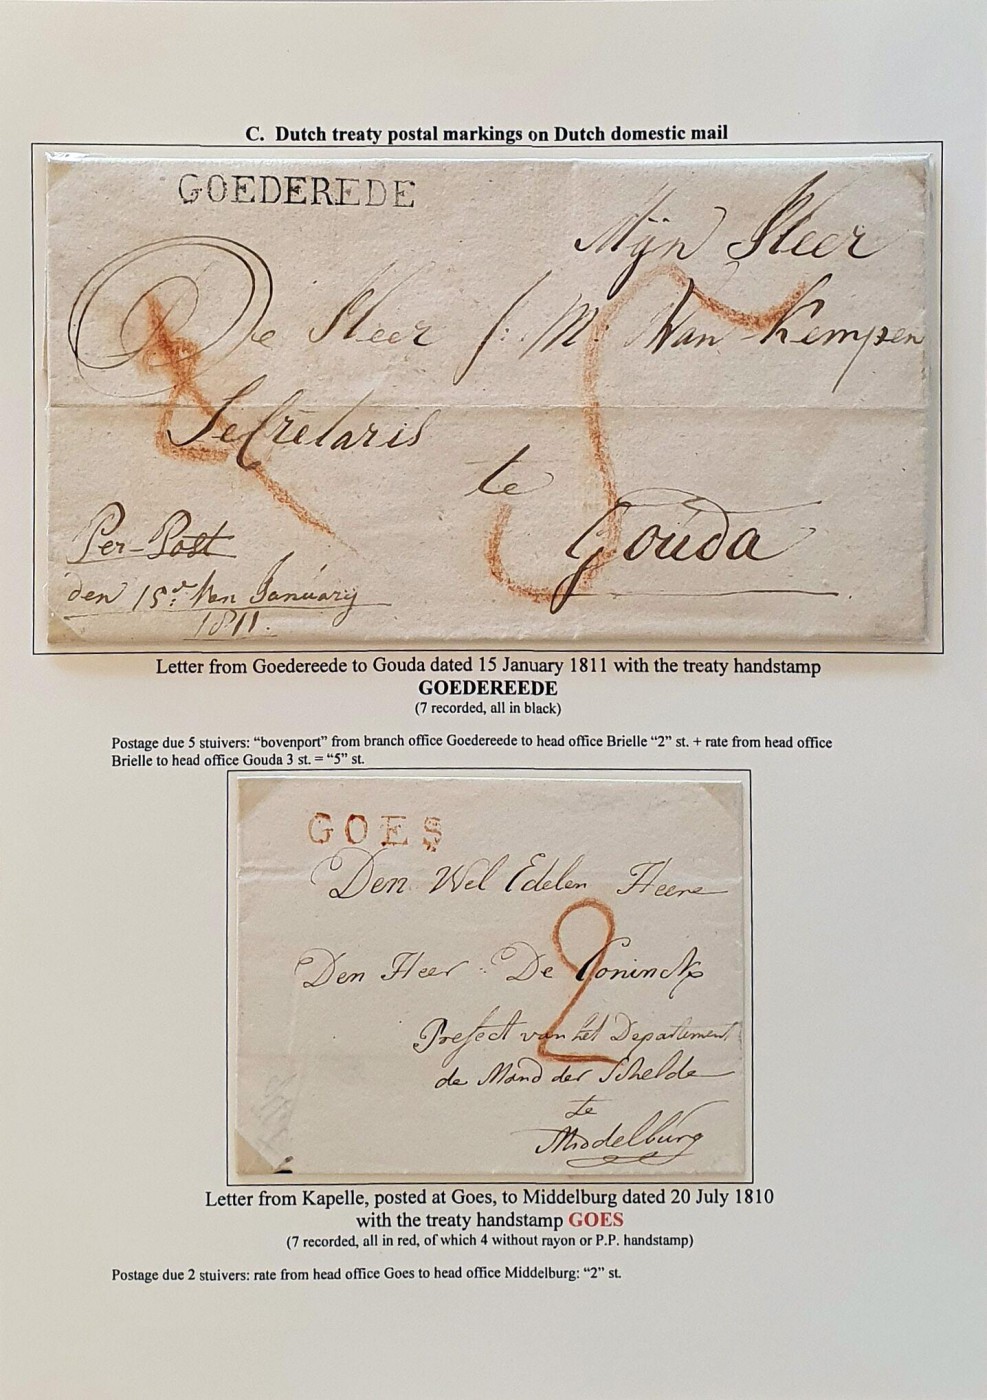 C. Dutch treaty postal markings on Dutch domestic mail
GOEDEREDE
Mijn Heer
De Heer J: M: Van Kempen
Secretaris
te
Gouda
Per-Post
den 15d: Van January
1811.
2
5
Letter from Goedereede to Gouda dated 15 January 1811 with the treaty handstamp
GOEDEREEDE
(7 recorded, all in black)
Postage due 5 stuivers: “bovenport” from branch office Goedereede to head office Brielle “2” st. + rate from head office
Brielle to head office Gouda 3 st. = “5” st.
GOES
Den Wel Edelen Heere
Den Heer De Coninck
2
Prefect van het Departement
de Mond der Schelde
te
Middelburg
Letter from Kapelle, posted at Goes, to Middelburg dated 20 July 1810
with the treaty handstamp GOES
(7 recorded, all in red, of which 4 without rayon or P.P. handstamp)
Postage due 2 stuivers: rate from head office Goes to head office Middelburg: “2” st.